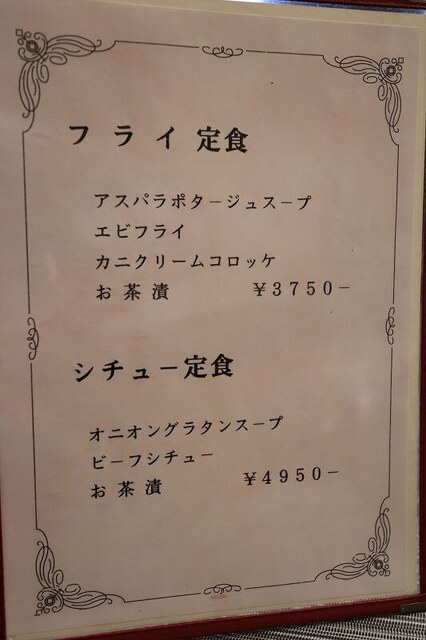 フライ定食
アスパラポタージュスープ
エビフライ
カニクリームコロッケ
お茶漬 ¥3750−
シチュー定食
オニオングラタンスープ
ビーフシチュー
お茶漬 ¥4950−